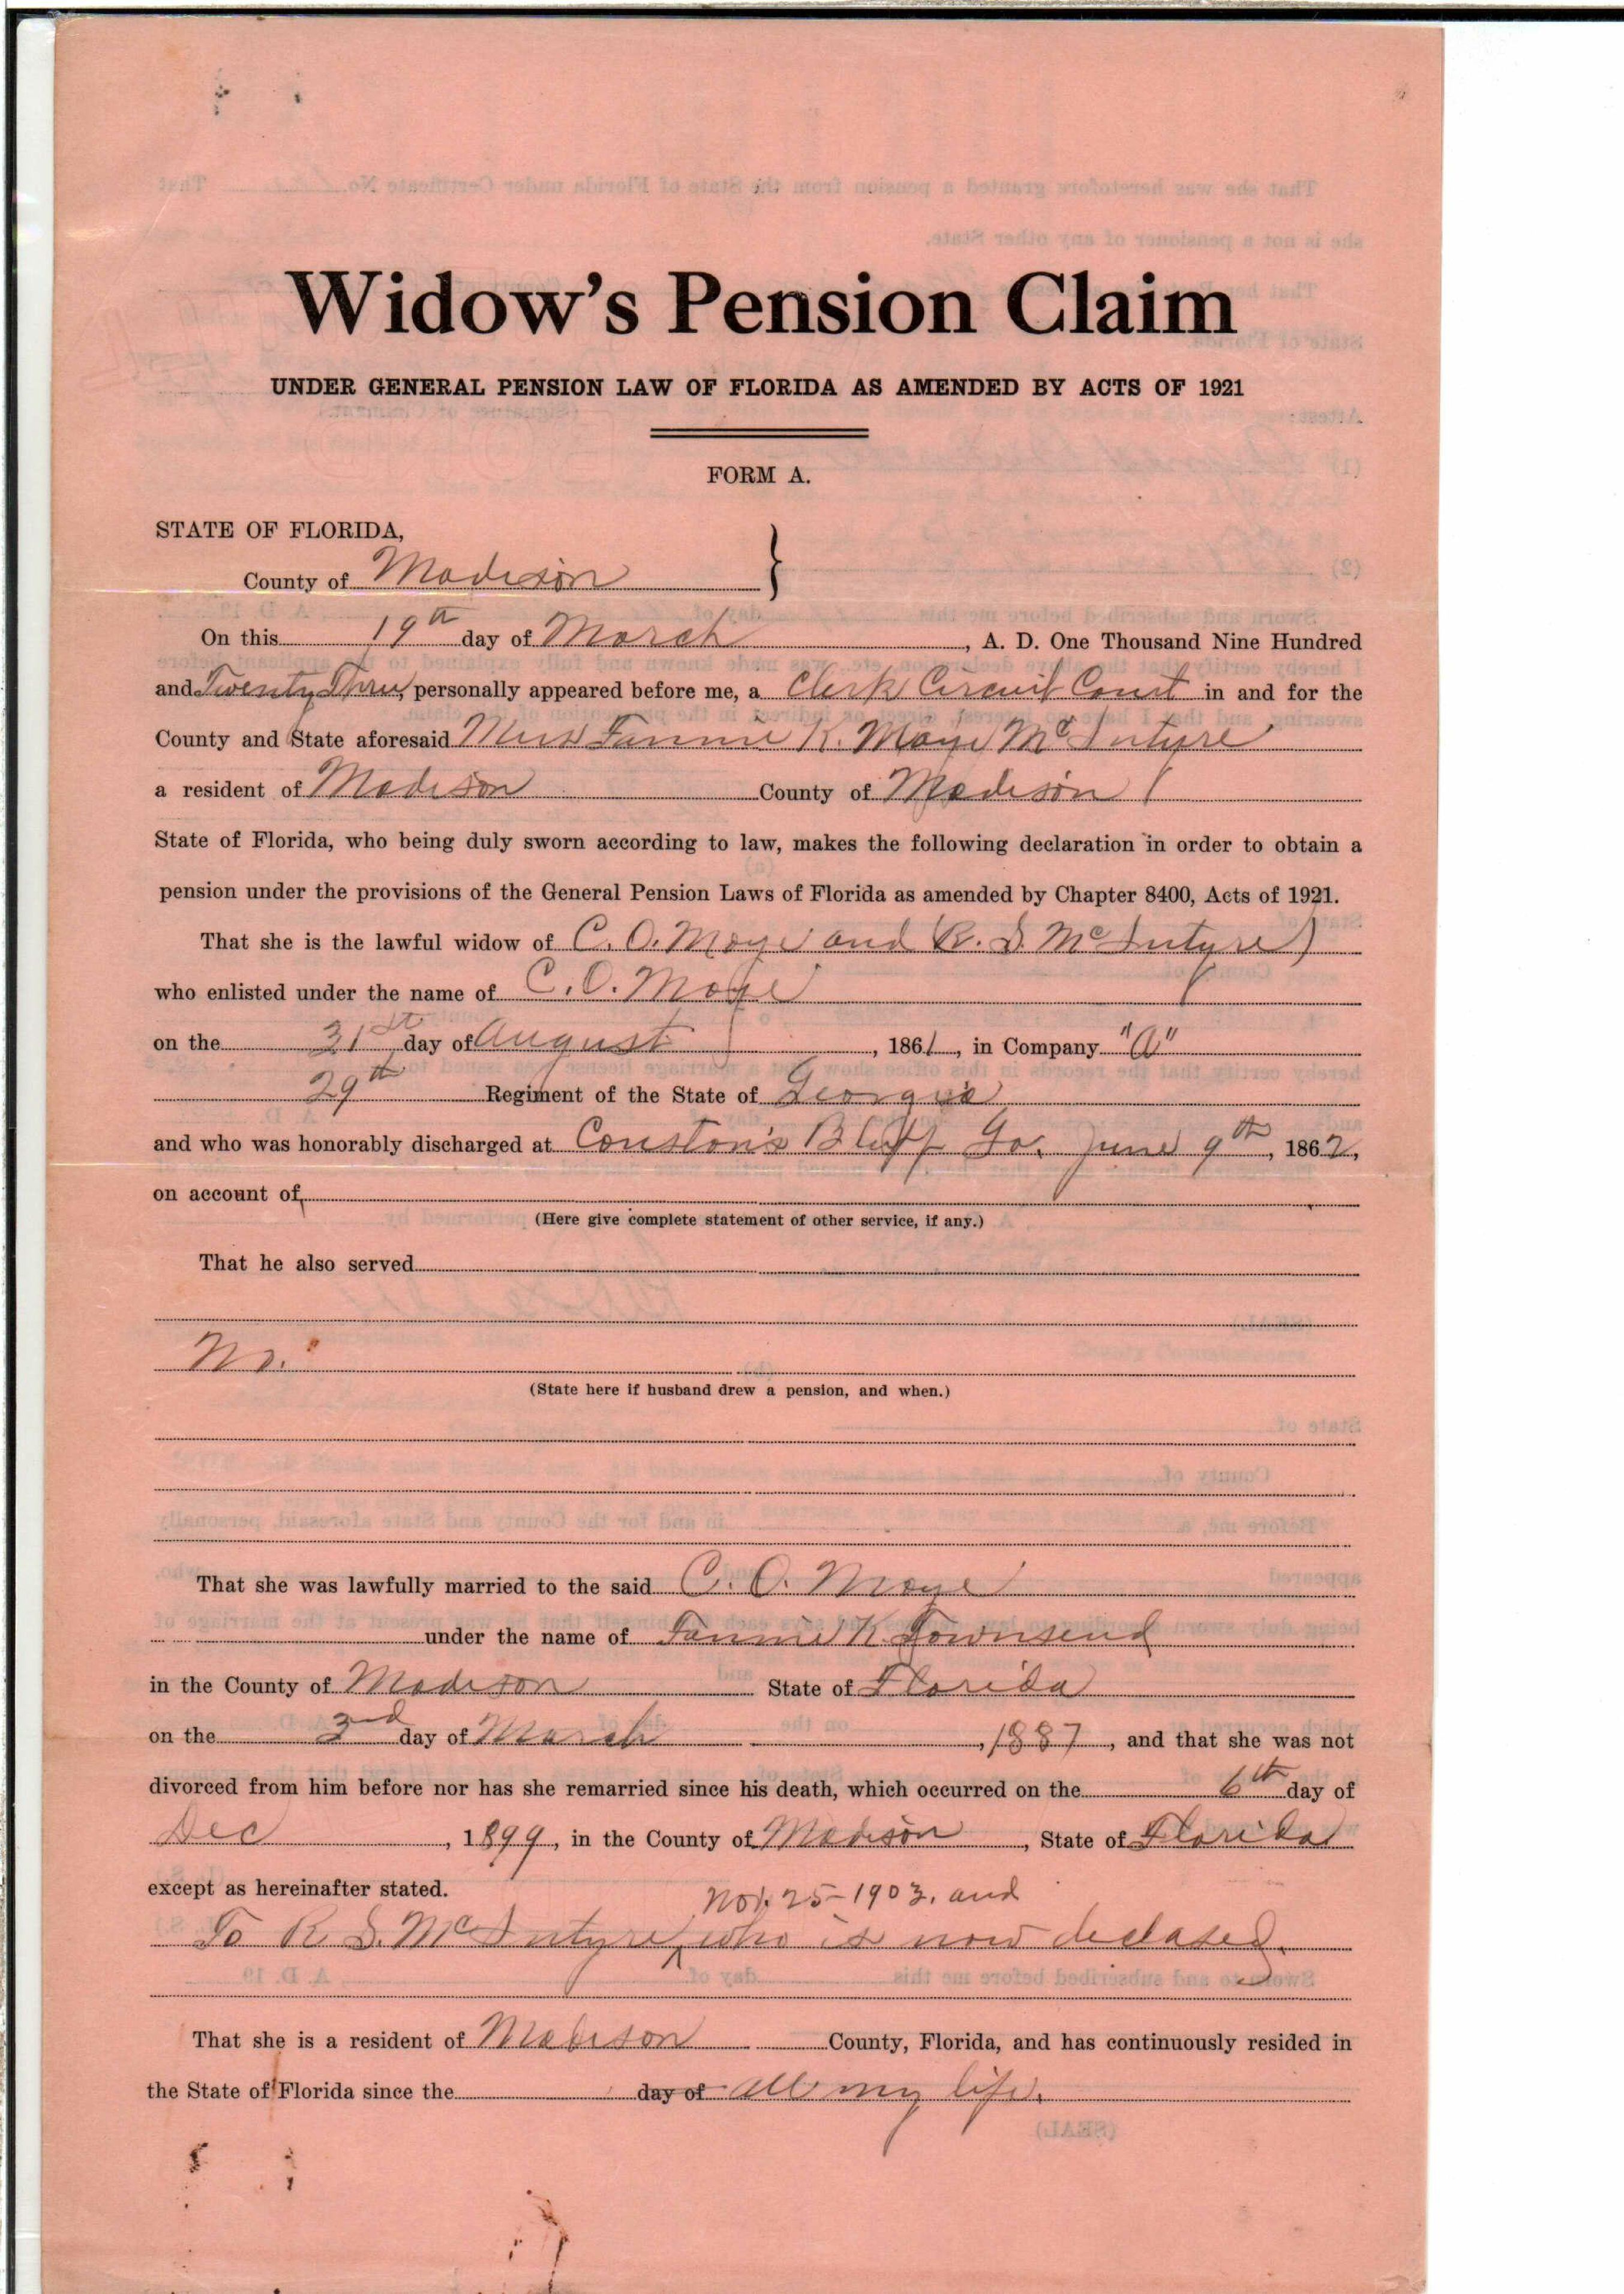 Widow's Pension Claim
UNDER GENERAL PENSION LAW OF FLORIDA AS AMENDED BY ACTS OF 1921
FORM A.
STATE OF FLORIDA,
County of Madison }
On this 19th day of March, A. D. One Thousand Nine Hundred
and Twenty Three, personally appeared before me, a Clerk Circuit Court in and for the
County and State aforesaid Mrs Fannie K. Moye McIntyre
a resident of Madison County of Madison
State of Florida, who being duly sworn according to law, makes the following declaration in order to obtain a
pension under the provisions of the General Pension Laws of Florida as amended by Chapter 8400, Acts of 1921.
That she is the lawful widow of C. O. Moye and R. S. McIntyre
who enlisted under the name of C. O. Moye
on the 31st day of August, 1861, in Company "A"
29th Regiment of the State of Georgia
and who was honorably discharged at Couston's Bluff Ga. June 9th, 1862,
on account of
(Here give complete statement of other service, if any.)
That he also served
No.
(State here if husband drew a pension, and when.)
That she was lawfully married to the said C. O. Moye
under the name of Fannie K. Townsend
in the County of Madison State of Florida
on the day of March, 1887, and that she was not
divorced from him before nor has she remarried since his death, which occurred on the 6th day of
Dec, 1899, in the County of Madison, State of Florida
except as hereinafter stated.
Nov. 25-1903, and
To R. S. McIntyre, who is now deceased.
That she is a resident of Madison County, Florida, and has continuously resided in
the State of Florida since the day of all my life.